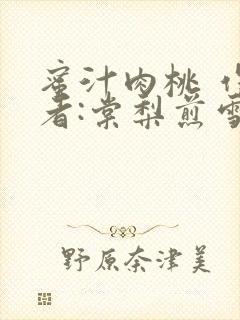 蜜汁肉桃
者:棠梨煎
野原奈津美